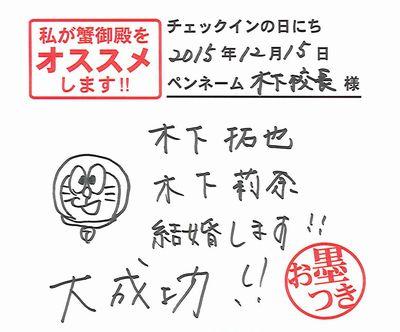 私が蟹御殿を
オススメ
します!!
チェックインの日にち
2015年12月15日
ペンネーム 木下校長 様
木下 拓也
木下 莉奈
結婚します!!
大成功!!
お墨つき